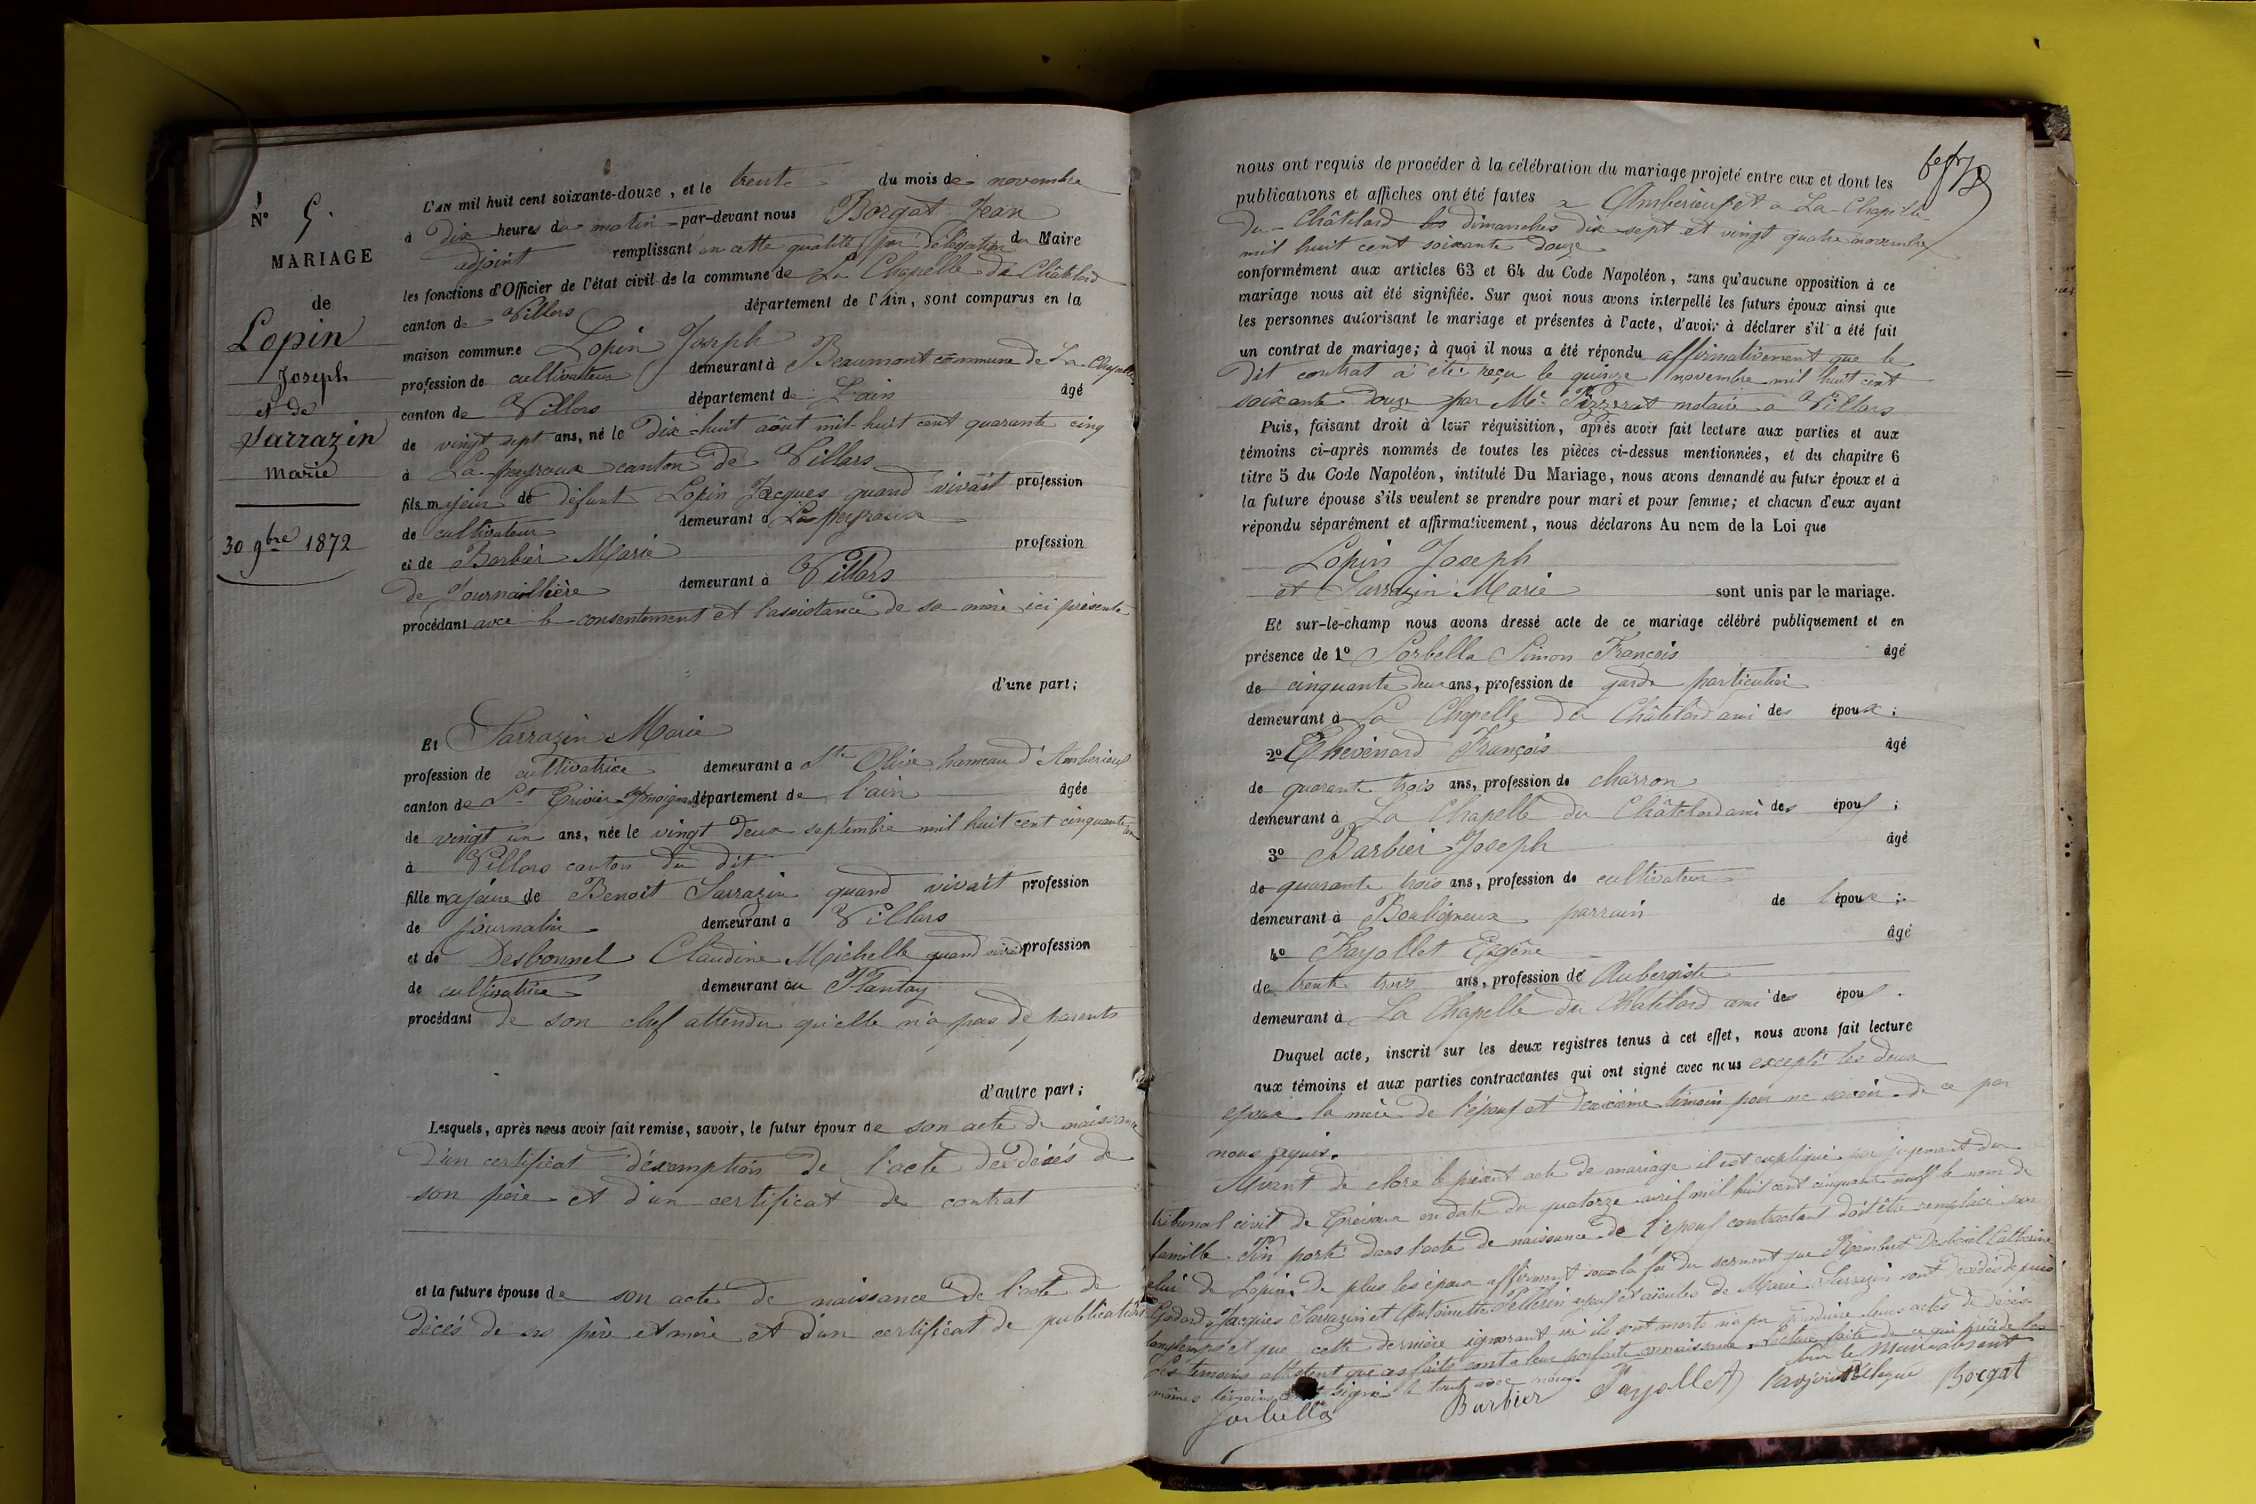 N° 5.
MARIAGE
de
Lopin
Joseph
et de
Sarrazin
marie
30 9bre 1872
L'AN mil huit cent soixante-douze, et le trente du mois de novembre
à dix heures du matin par-devant nous Borgat Jean
adjoint remplissant en cette qualité par délégation du Maire
les fonctions d'Officier de l'état civil de la commune de La Chapelle du Châtelard
canton de Villars département de l'Ain, sont comparus en la
maison commune Lopin Joseph
profession de cultivateur demeurant à Beaumont commune de La Chapelle
canton de Villars département de l'ain âgé
de vingt sept ans, né le dix-huit août mil huit cent quarante cinq
à La peyrouse canton de Villars
fils majeur de défunt Lopin Jacques quand vivait profession
de cultivateur demeurant à La peyrouse
et de Barbier Marie profession
de Journaillière demeurant à Villars
procédant avec le consentement et l'assistance de sa mère ici présente
d'une part;
Et Sarrazin Marie
profession de cultivatrice demeurant à Ste Olive hameau d'Ambérieux
canton de St Trivier département de l'ain âgée
de vingt un ans, née le vingt deux septembre mil huit cent cinquante un
à Villars canton du dit
fille majeure de Benoit Sarrazin quand vivait profession
de journalier demeurant à Villars
et de Desbonnel Claudine Michelle quand vivait profession
de cultivatrice demeurant au Plantay
procédant de son chef attendu qu'elle n'a pas de parents
d'autre part;
Lesquels, après nous avoir fait remise, savoir, le futur époux de son acte de naissance
d'un certificat d'exemption de l'acte de décès de
son père et d'un certificat de contrat
et la future épouse de son acte de naissance de l'acte de
décès de ses père et mère et d'un certificat de publication
nous ont requis de procéder à la célébration du mariage projeté entre eux et dont les
publications et affiches ont été faites à Ambérieux et à La Chapelle
du Châtelard les dimanches dix-sept et vingt quatre novembre
mil huit cent soixante douze
conformément aux articles 63 et 64 du Code Napoléon, sans qu'aucune opposition à ce
mariage nous ait été signifiée. Sur quoi nous avons interpellé les futurs époux ainsi que
les personnes autorisant le mariage et présentes à l'acte, d'avoir à déclarer s'il a été fait
un contrat de mariage; à quoi il nous a été répondu affirmativement que le
dit contrat a été reçu le quinze novembre mil huit cent
soixante douze par Me notaire à Villars
Puis, faisant droit à leur réquisition, après avoir fait lecture aux parties et aux
témoins ci-après nommés de toutes les pièces ci-dessus mentionnées, et du chapitre 6
titre 5 du Code Napoléon, intitulé Du Mariage, nous avons demandé au futur époux et à
la future épouse s'ils veulent se prendre pour mari et pour femme; et chacun d'eux ayant
répondu séparément et affirmativement, nous déclarons Au nom de la Loi que
Lopin Joseph
et Sarrazin Marie sont unis par le mariage.
Et sur-le-champ nous avons dressé acte de ce mariage célébré publiquement et en
présence de 1° Sorbella Simon François âgé
de cinquante deux ans, profession de garde particulier
demeurant à La Chapelle du Châtelard ami des époux;
2° Thévenard François âgé
de quarante trois ans, profession de charron
demeurant à La Chapelle du Châtelard ami des époux;
3° Barbier Joseph âgé
de quarante trois ans, profession de cultivateur
demeurant à Bouligneux parrain de l'époux;
4° Fayollet Eugène âgé
de trente trois ans, profession de Aubergiste
demeurant à La Chapelle du Châtelard ami des époux.
Duquel acte, inscrit sur les deux registres tenus à cet effet, nous avons fait lecture
aux témoins et aux parties contractantes qui ont signé avec nous excepté les deux
époux la mère de l'époux et deuxième témoin pour ne savoir de ce par
nous requis.
Avant de clore le présent acte de mariage il est expliqué par jugement du
tribunal civil de Trévoux en date du quatorze avril mil huit cent cinquante neuf le nom de
famille Pin porté dans l'acte de naissance de l'époux contractant doit être remplacé par
celui de Lopin. De plus les époux affirment sous la foi du serment que Rambert Desbonel Catherine
Godard, Jacques Sarrazin et Antoinette Pellerin ayeux et aïeules de Marie Sarrazin sont décédés depuis
longtemps et que cette dernière ignorant où ils sont morts n'a pu produire leurs actes de décès.
Les témoins attestent que ces faits sont à leur parfaite connaissance. Lecture faite de ce qui précède les
mêmes témoins ont signé le tout avec nous.
Pour le Maire absent
Sorbella Barbier Fayollet l'adjoint délégué Borgat